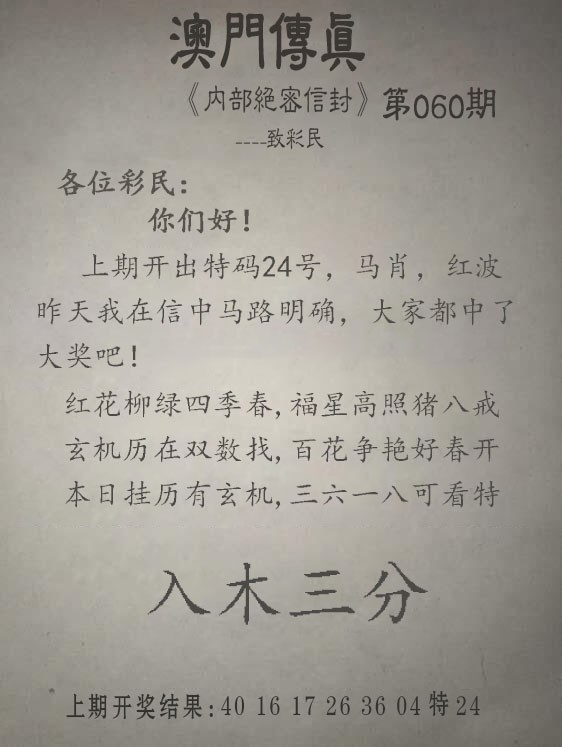 澳門傳真
《内部絕密信封》第060期
----致彩民
各位彩民:
你们好!
上期开出特码24号，马肖，红波
昨天我在信中马路明确，大家都中了
大奖吧!
红花柳绿四季春,福星高照猪八戒
玄机历在双数找,百花争艳好春开
本日挂历有玄机,三六一八可看特
入木三分
上期开奖结果:40 16 17 26 36 04 特 24